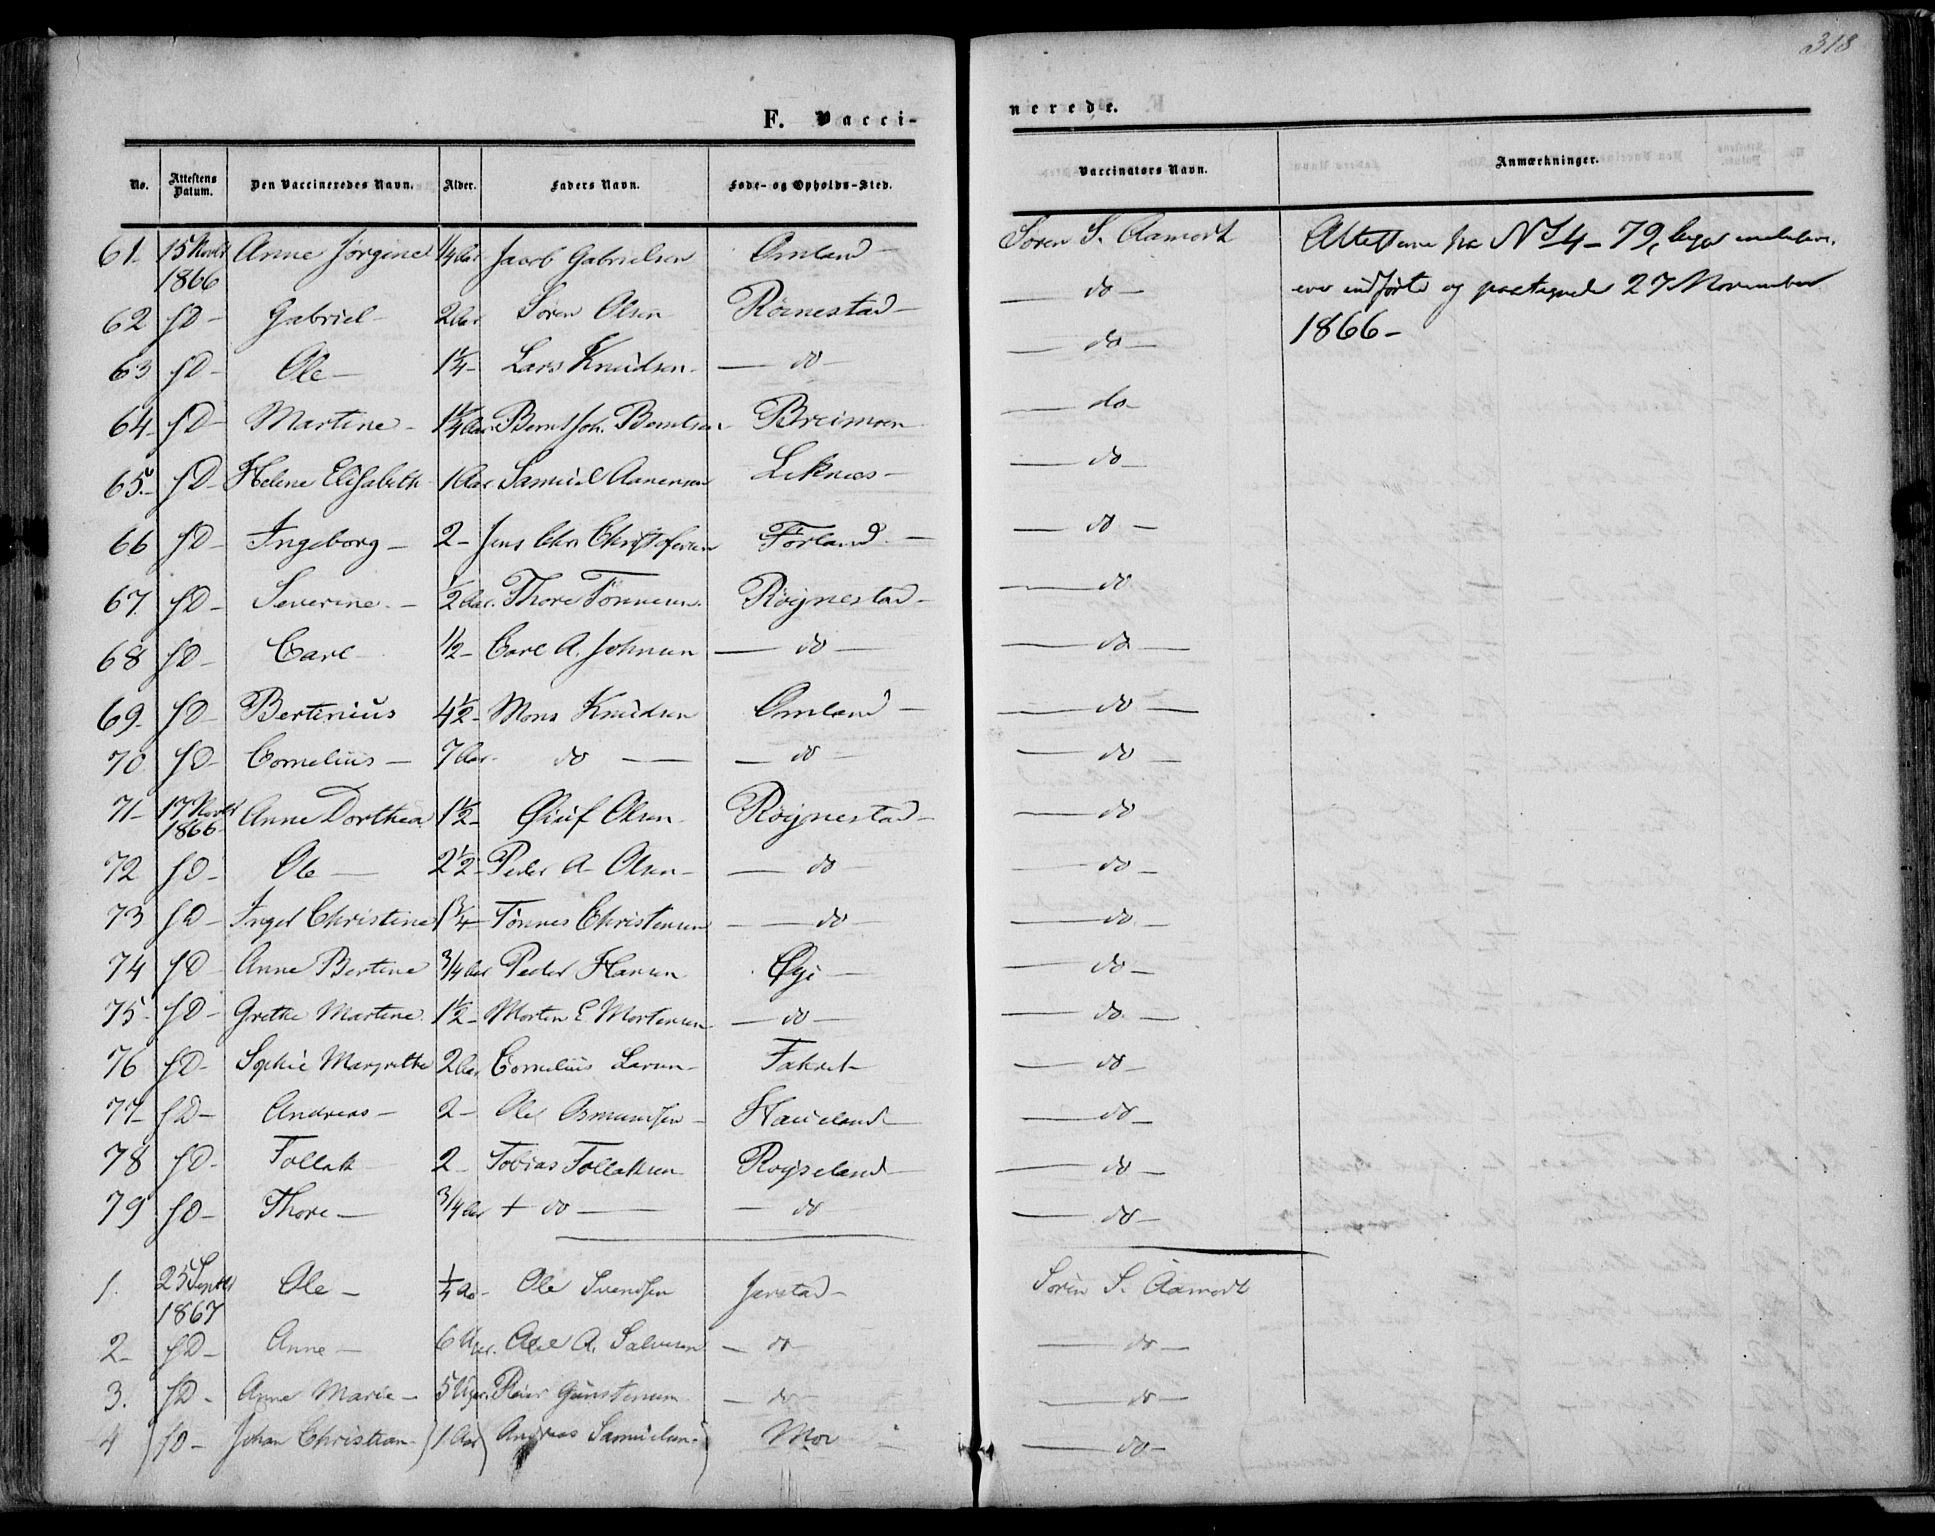 318
F. Vacci-
nerede.
No. Attestens Datum. Den Vaccineredes Navn. Alder. Faders Navn. Føde- og Opholds-Sted. Vaccinators Navn. Anmærkninger.
61. 15 Novbr 1866 Anne Jørgine 1/4 Aar Jacob Gabrielsen Omland - Søren S. Aamodt
62 sD- Gabriel- 2 Aar Søren Olsen Røinestad - do -
63 sD- Ole - 1 1/4- Lars Knudsen - do - do -
64- sD- Martine - 1 1/4 Aar. Bernt Joh. Berntsen Breimoen do-
65.- sD- Helene Elisabeth 1 Aar Samuel Aanensen Leknes - do -
66 sD- Ingeborg - 2- Jens Chr. Christofersen Førland. - do -
67. sD- Severine. - 1/2 Aar. Thore Tønnesen. Røignestad - do
68 sD- Carl 1 1/2- Carl A. Johnsen - do - do -
69- sD- Bertinius 4 1/2- Mons Knudsen Omland - do -
70 sD- Cornelius - 7 Aar. do - do - do -
71- 17 Novbr 1866- Anne Dorthea 1 1/2- Olsen Røignestad - do
72 sD- Ole - 2 1/2- Peder A- Olsen - do - do -
73 sD- Inger Christine 1 3/4- Tønnes Christensen - do - do -
74 sD- Anne Bertine 3/4 Aar Peder Hansen Øye - do -
75- sD- Grethe Martine. 1 1/2- Morten E Mortensen - do - do. -
76 sD- Sophie Margrethe 2 Aar Cornelius Larsen - do -
77- sD- Andreas - 2- Ole Osmundsen - Haueland do -
78 sD- Tollak 2- Tobias Tollaksen Røyseland - do -
79 sD- Thore - 3/4 Aar + do - do - do -
1. 25 Septbr 1867 Ole - 1/4 Aar Ole Svendsen Jerstad - Søren S. Aamodt
2- sD- Anne - 6 Uger. A. Salvesen - do - do -
3. sD- Anne Marie - 5 Uger. Reier Gunstensen - do - do -
4 sD- Johan Christian 1 Aar Andreas Samuelsen Moe - do -
Attesterne fra No 54 - 79,
ere indførte og paategnede 27 November
1866-